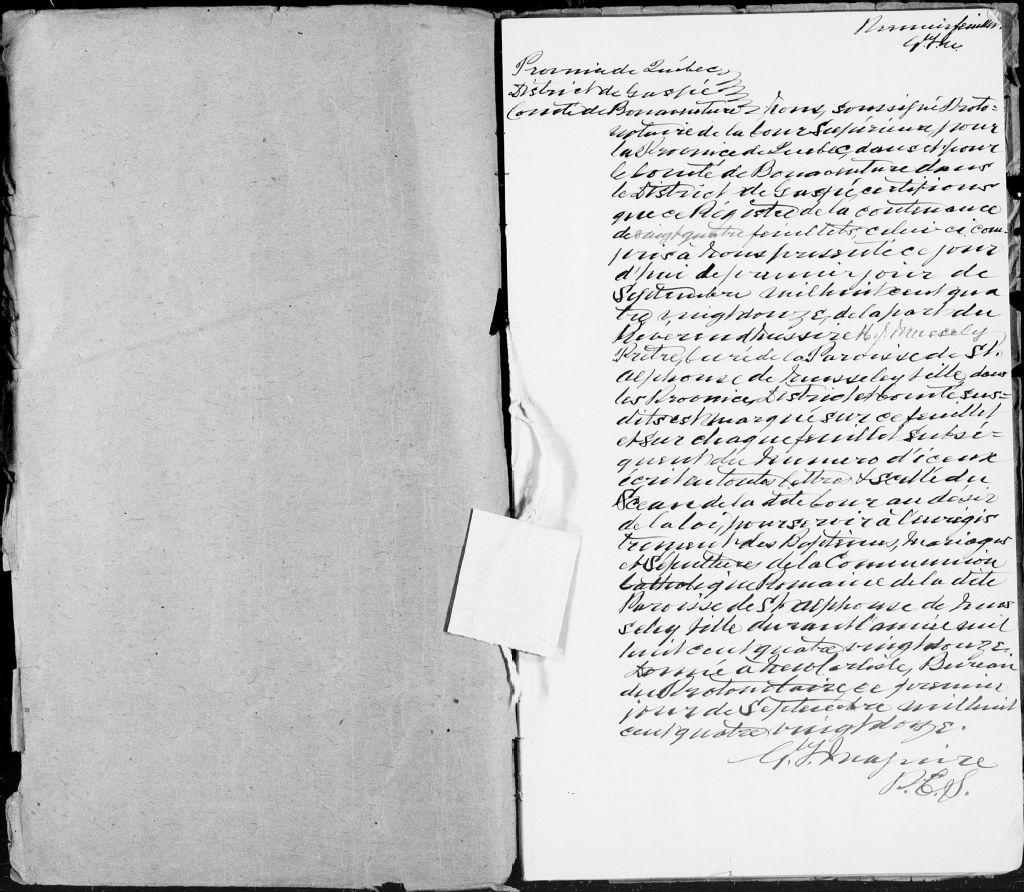 Premier feuillet.
Province de Québec
District de Gaspé
Comté de Bonaventure Nous, soussigné Proto=
notaire de la Cour Supérieure, pour
la Province de Québec, dans et pour
le Comté de Bonaventure dans
le District de Gaspé certifions
que ce Régistre de la contenance
de vingt quatre feuillets celui-ci com-
pris à Nous présenté ce jour
d'hui de premier jour de
Septembre mil huit cent qua
tre vingt douze, de la part du
Révérend Messire H. J. Mussely
Prêtre, Curé de la Paroisse de St.
Alphonse de Musseleyville, dans
les Province, District et Comté sus=
dits est marqué sur ce feuillet
et sur chaque feuillet subsé=
quent du Numero d'iceux
écrit en toutes lettres & scellé du
Sceau de la dite Cour au désir
de la loi, pour servir à l'enrégis
trement des Baptêmes, Mariages
et Sépultures de la Communion
Catholique Romaine de la dite
Paroisse de St Alphonse de Mus
seleyville durant l'année mil
huit cent quatre vingt douze.
Donné à New Carlisle, Bureau
du Protonotaire, ce premier
jour de Septembre mil huit
cent quatre vingt douze.
P.C.S.